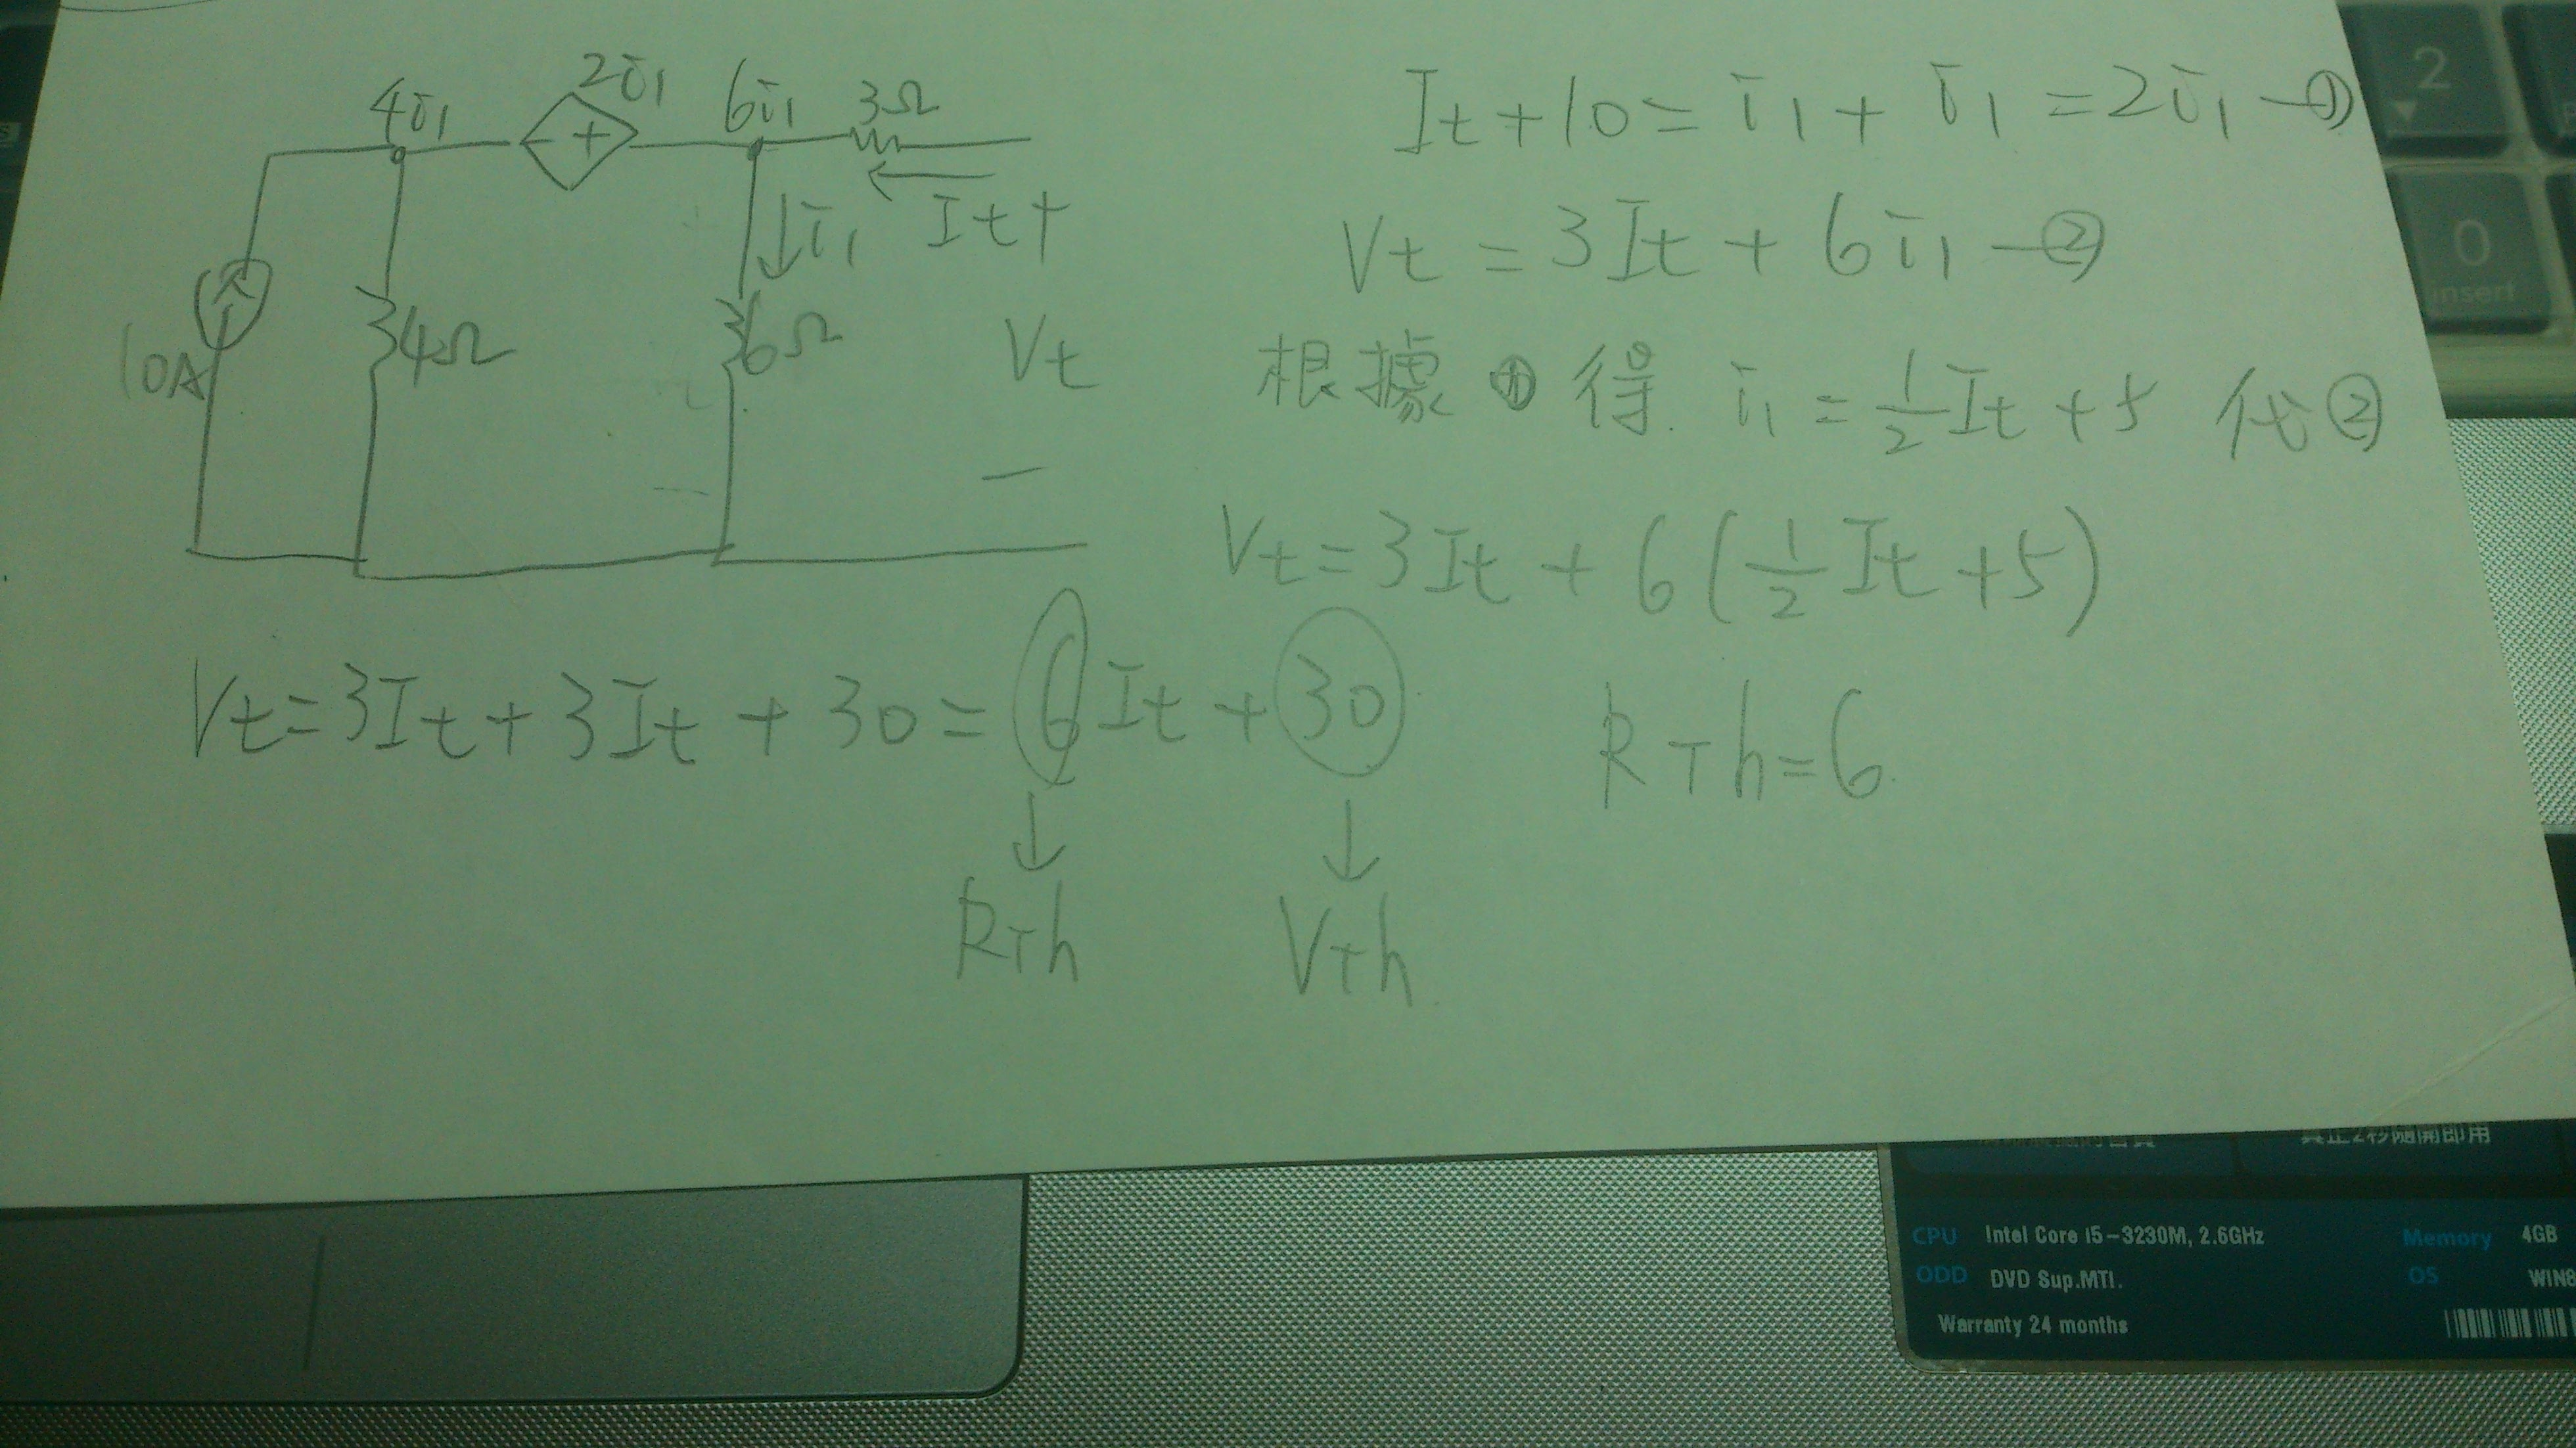 4i₁
2i₁
6i₁
3Ω
− +
i₁
It
+
10A
4Ω
6Ω
Vt
−
It + 10 = i₁ + i₁ = 2i₁ —①
Vt = 3It + 6i₁ —②
根據 ① 得. i₁ = 1/2 It + 5 代②
Vt = 3It + 6(1/2 It + 5)
Vt = 3It + 3It + 30 = 6It + 30
RTh = 6
↓ ↓
RTh VTh
2
0
insert
CPU Intel Core i5-3230M, 2.6GHz Memory 4GB
ODD DVD Sup.MTI. OS WIN8
Warranty 24 months